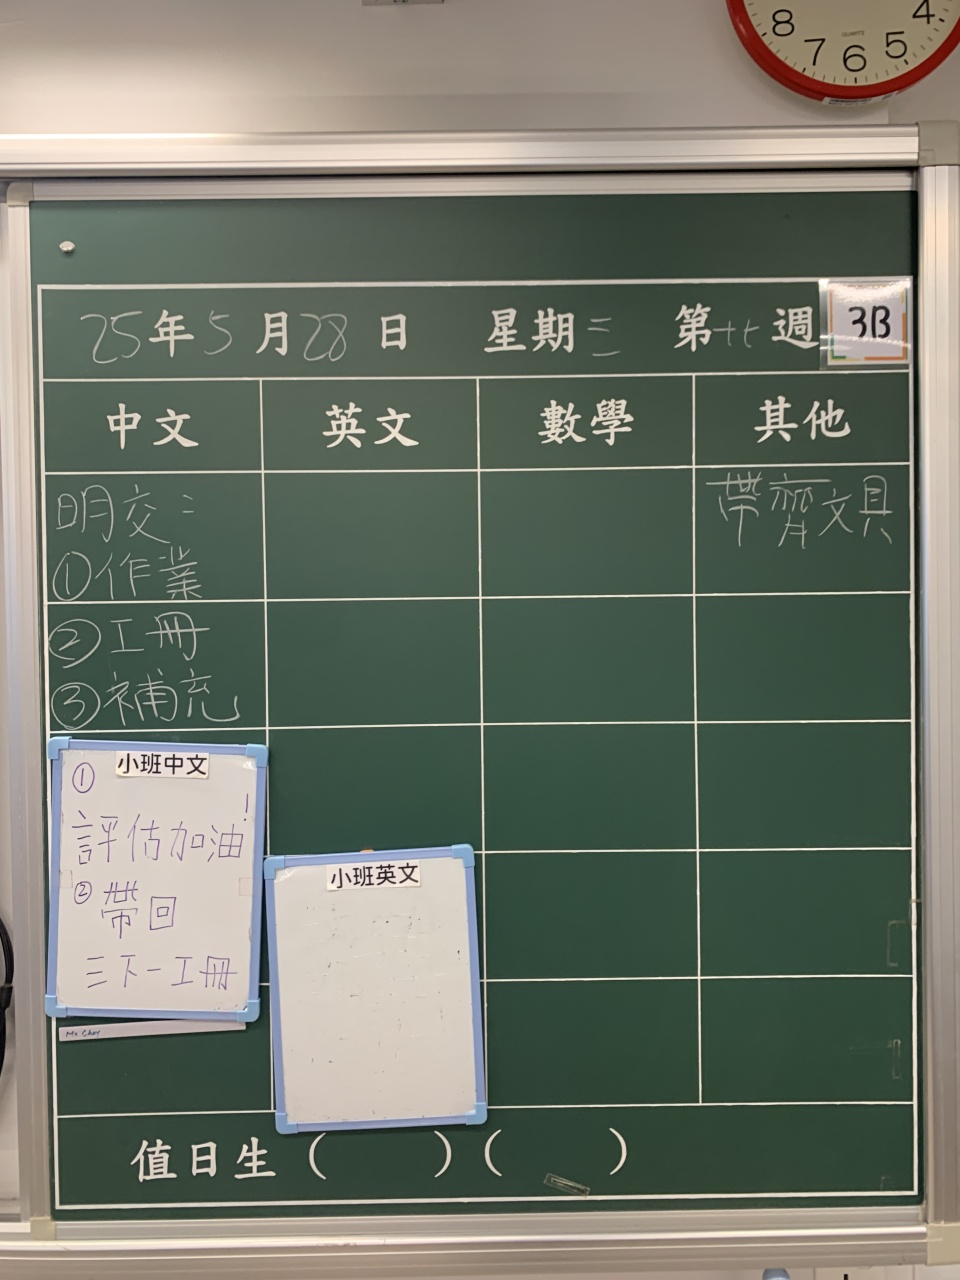 8 7 6 5 4
QUARTZ
25年5月28日 星期三 第廿七週 3B
中文 英文 數學 其他
明交：
①作業
②工冊
③補充
帶齊文具
小班中文
①
評估加油!
②帶回
三下一工冊
小班英文
值日生 ( ) ( )